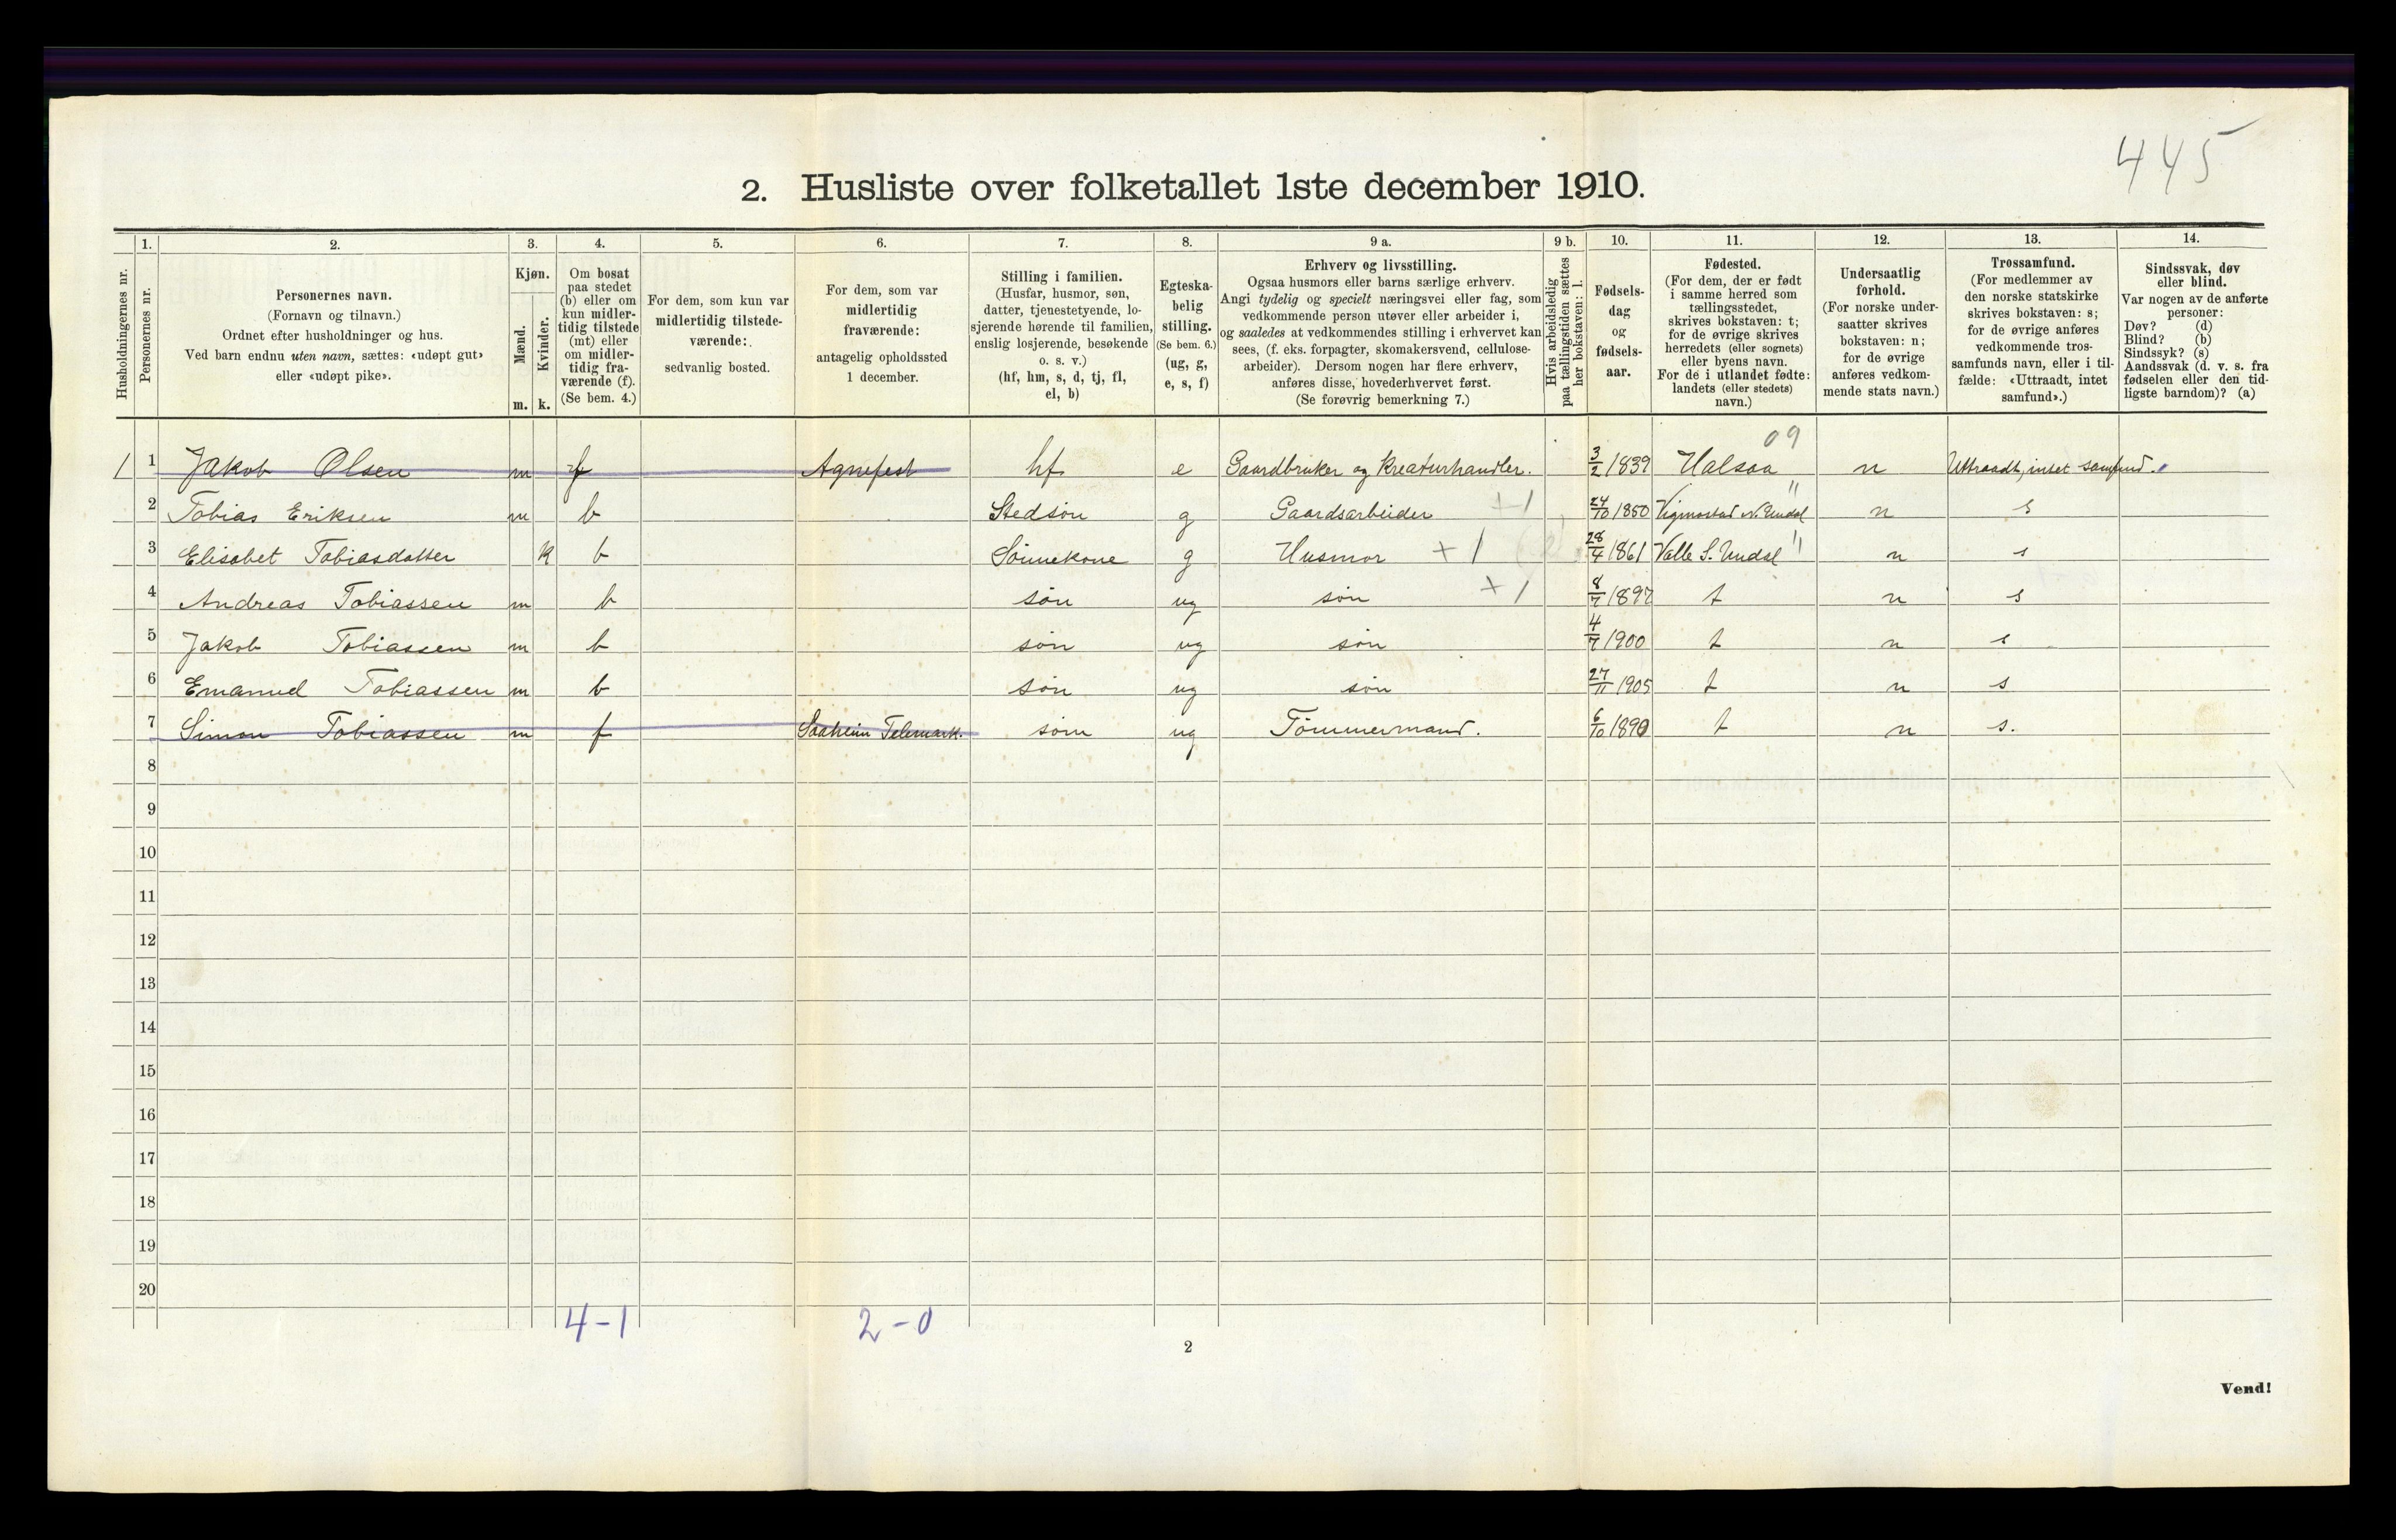 445
2. Husliste over folketallet 1ste december 1910.
Husholdningernes nr.
1. Personernes nr.
2. Personernes navn.
(Fornavn og tilnavn.)
Ordnet efter husholdninger og hus.
Ved barn endnu uten navn, sættes: «udøpt gut»
eller «udøpt pike».
3. Kjøn.
Mænd. Kvinder.
m. k.
4. Om bosat
paa stedet
(b) eller om
kun midler-
tidig tilstede
(mt) eller
om midler-
tidig fra-
værende (f).
(Se bem. 4.)
5. For dem, som kun var
midlertidig tilstede-
værende:
sedvanlig bosted.
6. For dem, som var
midlertidig
fraværende:
antagelig opholdssted
1 december.
7. Stilling i familien.
(Husfar, husmor, søn,
datter, tjenestetyende, lo-
sjerende hørende til familien,
enslig losjerende, besøkende
o. s. v.)
(hf, hm, s, d, tj, fl,
el, b)
8. Egteska-
belig
stilling.
(Se bem. 6.)
(ug, g,
e, s, f)
9 a. Erhverv og livsstilling.
Ogsaa husmors eller barns særlige erhverv.
Angi tydelig og specielt næringsvei eller fag, som
vedkommende person utøver eller arbeider i,
og saaledes at vedkommendes stilling i erhvervet kan
sees, (f. eks. forpagter, skomakersvend, cellulose-
arbeider). Dersom nogen har flere erhverv,
anføres disse, hovederhvervet først.
(Se forøvrig bemerkning 7.)
9 b. Hvis arbeidsledig
paa tællingstiden sættes
her bokstaven: l.
10. Fødsels-
dag
og
fødsels-
aar.
11. Fødested.
(For dem, der er født
i samme herred som
tællingsstedet,
skrives bokstaven: t;
for de øvrige skrives
herredets (eller sognets)
eller byens navn.
For de i utlandet fødte:
landets (eller stedets)
navn.)
12. Undersaatlig
forhold.
(For norske under-
saatter skrives
bokstaven: n;
for de øvrige
anføres vedkom-
mende stats navn.)
13. Trossamfund.
(For medlemmer av
den norske statskirke
skrives bokstaven: s;
for de øvrige anføres
vedkommende tros-
samfunds navn, eller i til-
fælde: «Uttraadt, intet
samfund».)
14. Sindssvak, døv
eller blind.
Var nogen av de anførte
personer:
Døv? (d)
Blind? (b)
Sindssyk? (s)
Aandssvak (d. v. s. fra
fødselen eller den tid-
ligste barndom)? (a)
09
1 1 Jakob Olsen m f Agnefest hf e Gaardbruker og Kreaturhandler. 3/2 1839 Halsaa n Uttraadt, intet samfund.
2 Tobias Eriksen m b Stedsön g Gaardsarbeider +1 24/10 1850 Vigmostad N. Undal " n s
3 Elisabet Tobiasdatter k b Sönnekone g Husmor +1 28/4 1861 Valle S. Undal " n s
4 Andreas Tobiassen m b sön ug sön +1 8/7 1897 t n s
5 Jakob Tobiassen m b sön ug sön 4/7 1900 t n s
6 Emanuel Tobiassen m b sön ug sön 27/11 1905 t n s
7 Simon Tobiassen m f Saaheim Telemark. sön ug Tömmermand. 6/10 1890 t n s.
8
9
10
11
12
13
14
15
16
17
18
19
20
4-1 2-0
2
Vend!